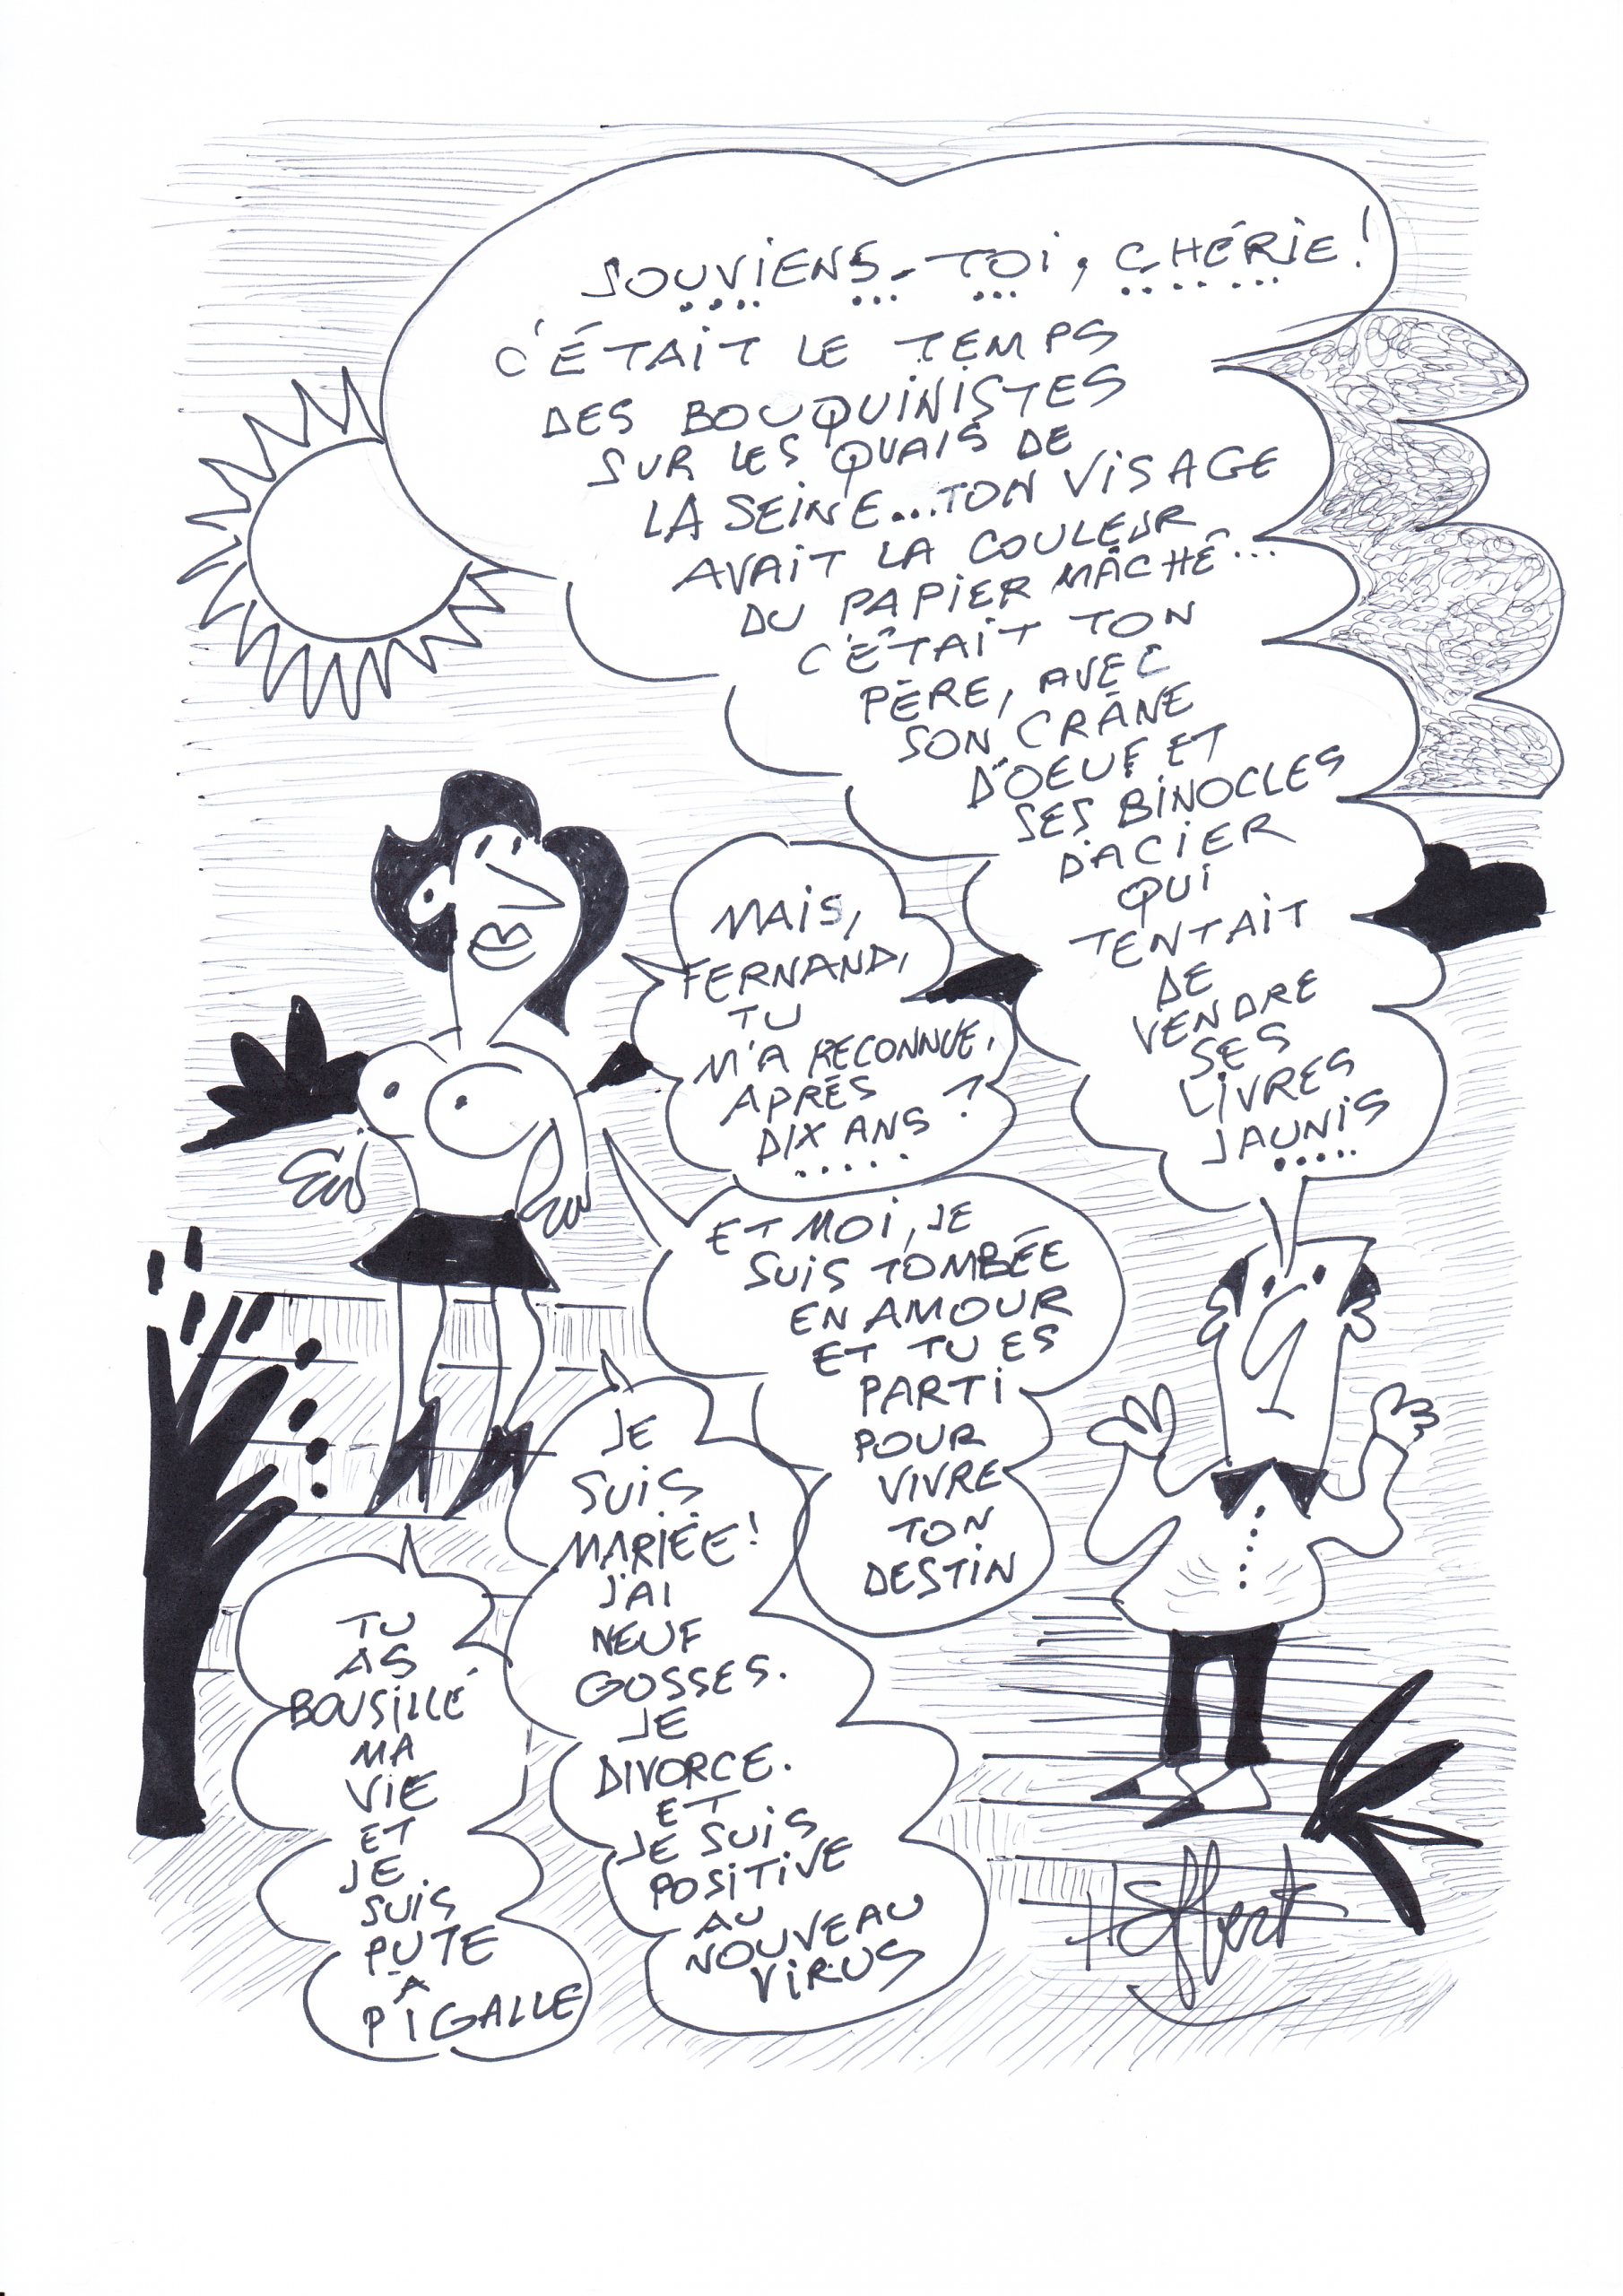 SOUVIENS-TOI, CHÉRIE!
C'ÉTAIT LE TEMPS
DES BOUQUINISTES
SUR LES QUAIS DE
LA SEINE...TON VISAGE
AVAIT LA COULEUR
DU PAPIER MÂCHÉ...
C'ÉTAIT TON
PÈRE, AVEC
SON CRÂNE
D'OEUF ET
SES BINOCLES
D'ACIER
QUI
TENTAIT
DE
VENDRE
SES
LIVRES
JAUNIS
.....
MAIS,
FERNAND,
TU
M'A RECONNUE,
APRÈS
DIX ANS?
.....
ET MOI, JE
SUIS TOMBÉE
EN AMOUR
ET TU ES
PARTI
POUR
VIVRE
TON
DESTIN
JE
SUIS
MARIÉE!
J'AI
NEUF
GOSSES.
JE
DIVORCE.
ET
JE SUIS
POSITIVE
AU
NOUVEAU
VIRUS
TU
AS
BOUSILLÉ
MA
VIE
ET
JE
SUIS
PUTE
A
PIGALLE